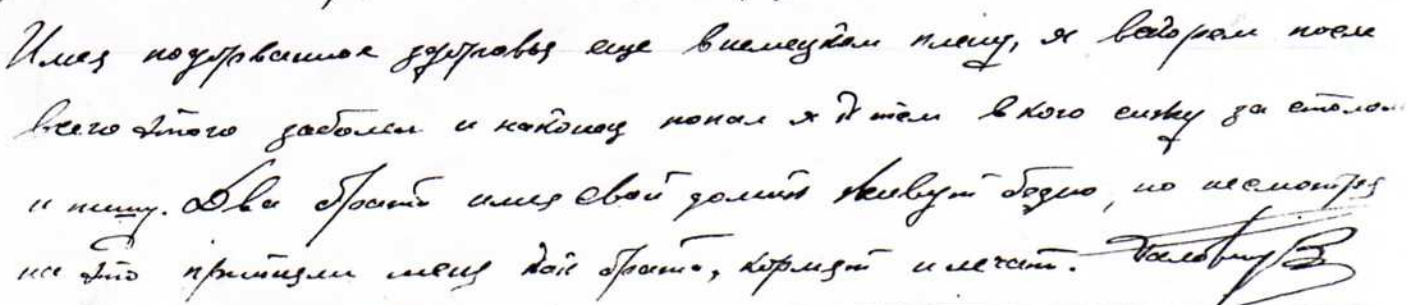 Имея подорванное здоровья еще в немецком плену, я вскорем после
всего этого заболел и наконец попал я к тем в кого сижу за столом
и пишу. Два брата имея свой домик живут бедно, но несмотря
на это приняли меня как брата, кормят и лечат.